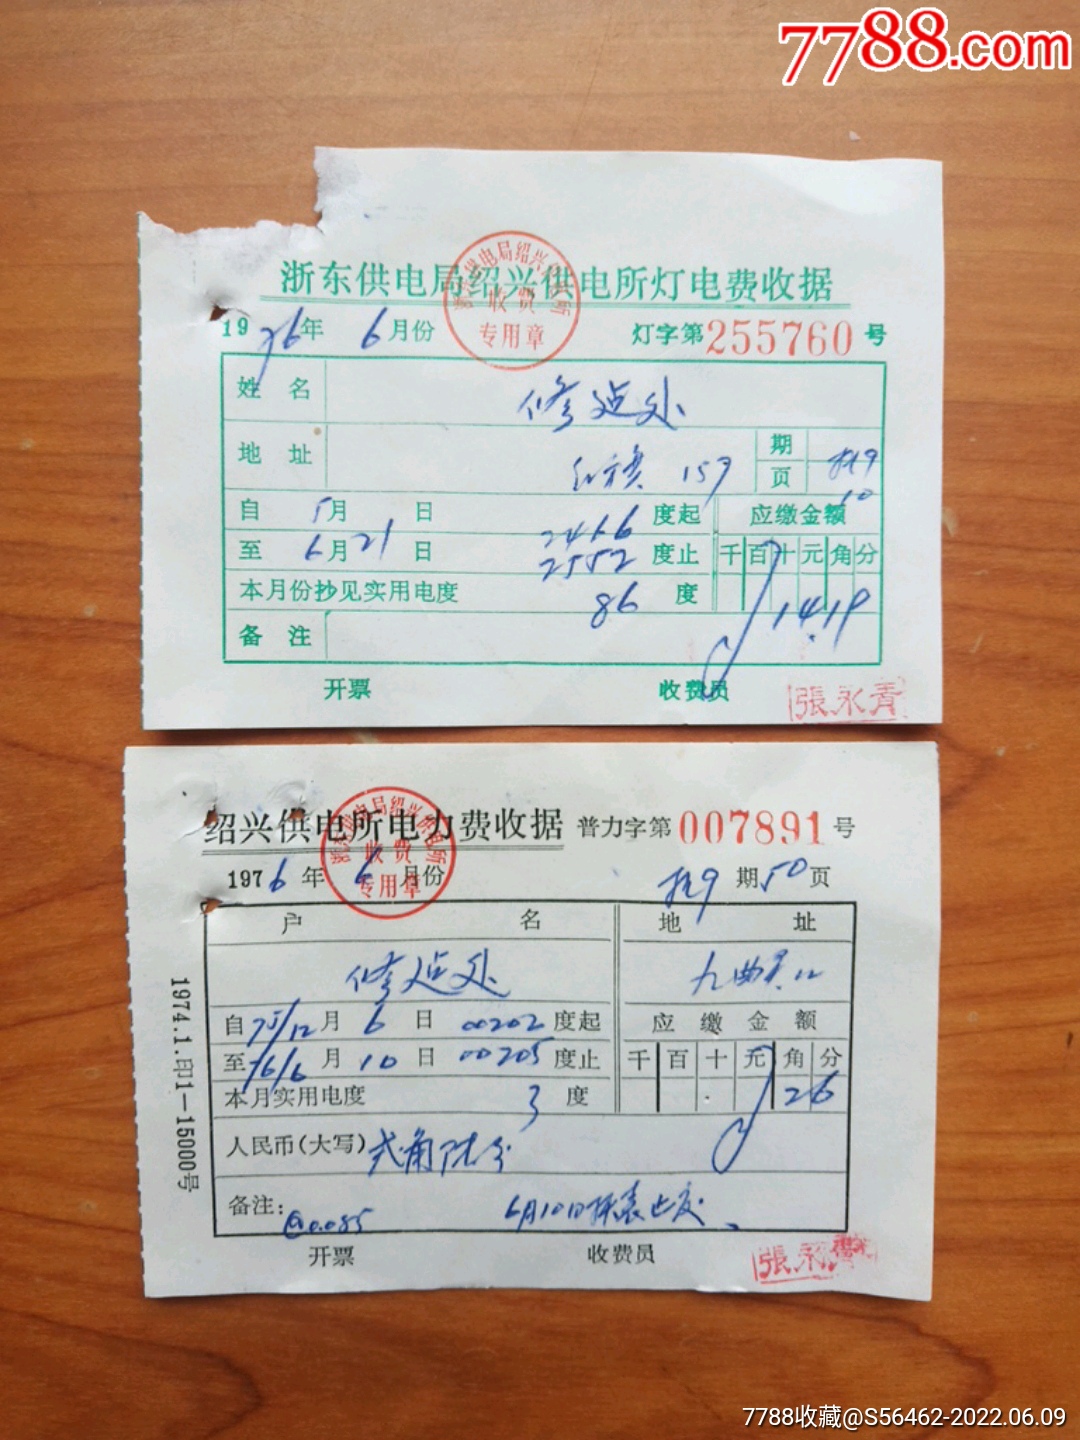 7788.com
浙东供电局绍兴供电所灯电费收据
浙东供电局绍兴供电所
收费
专用章
1976年 6月份 灯字第255760号
姓名 修造处
地址 红旗 157 期 页 60
自 5月 日 2466 度起 应缴金额
至 6月21日 2552 度止 千百十元角分
本月份抄见实用电度 86 度 14.19
备注
开票 收费员 張永青
绍兴供电所电力费收据 普力字第007891号
浙东供电局绍兴供电所
收费
专用章
1976年 6月份 期50页
户名 地址
修造处 九曲
自75/12月6日 00202度起 应缴金额
至76/6月10日 00205度止 千百十元角分
本月实用电度 3 度 26
人民币(大写) 贰角陆分
备注: @0.085 6月10日拆表止度
开票 收费员 張永青
1974.1.印1—15000号
7788收藏@S56462-2022.06.09